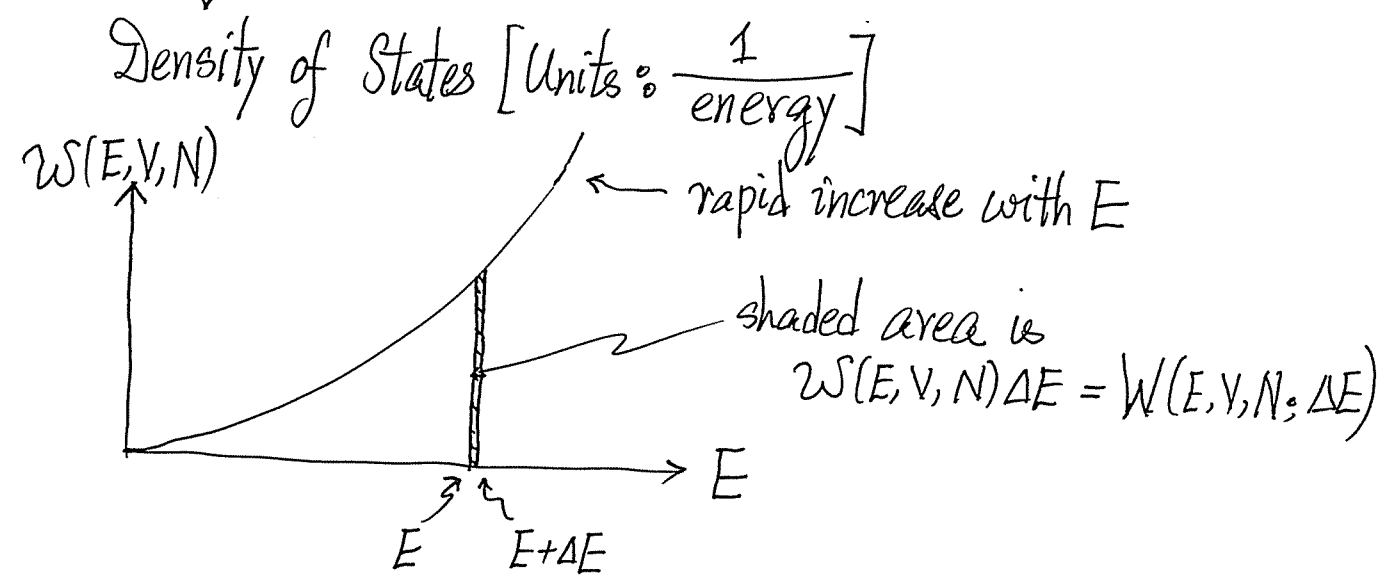 Density of States [Units: 1/energy]
𝒲(E,V,N)
rapid increase with E
shaded area is
𝒲(E,V,N)ΔE = W(E,V,N;ΔE)
E
E E+ΔE